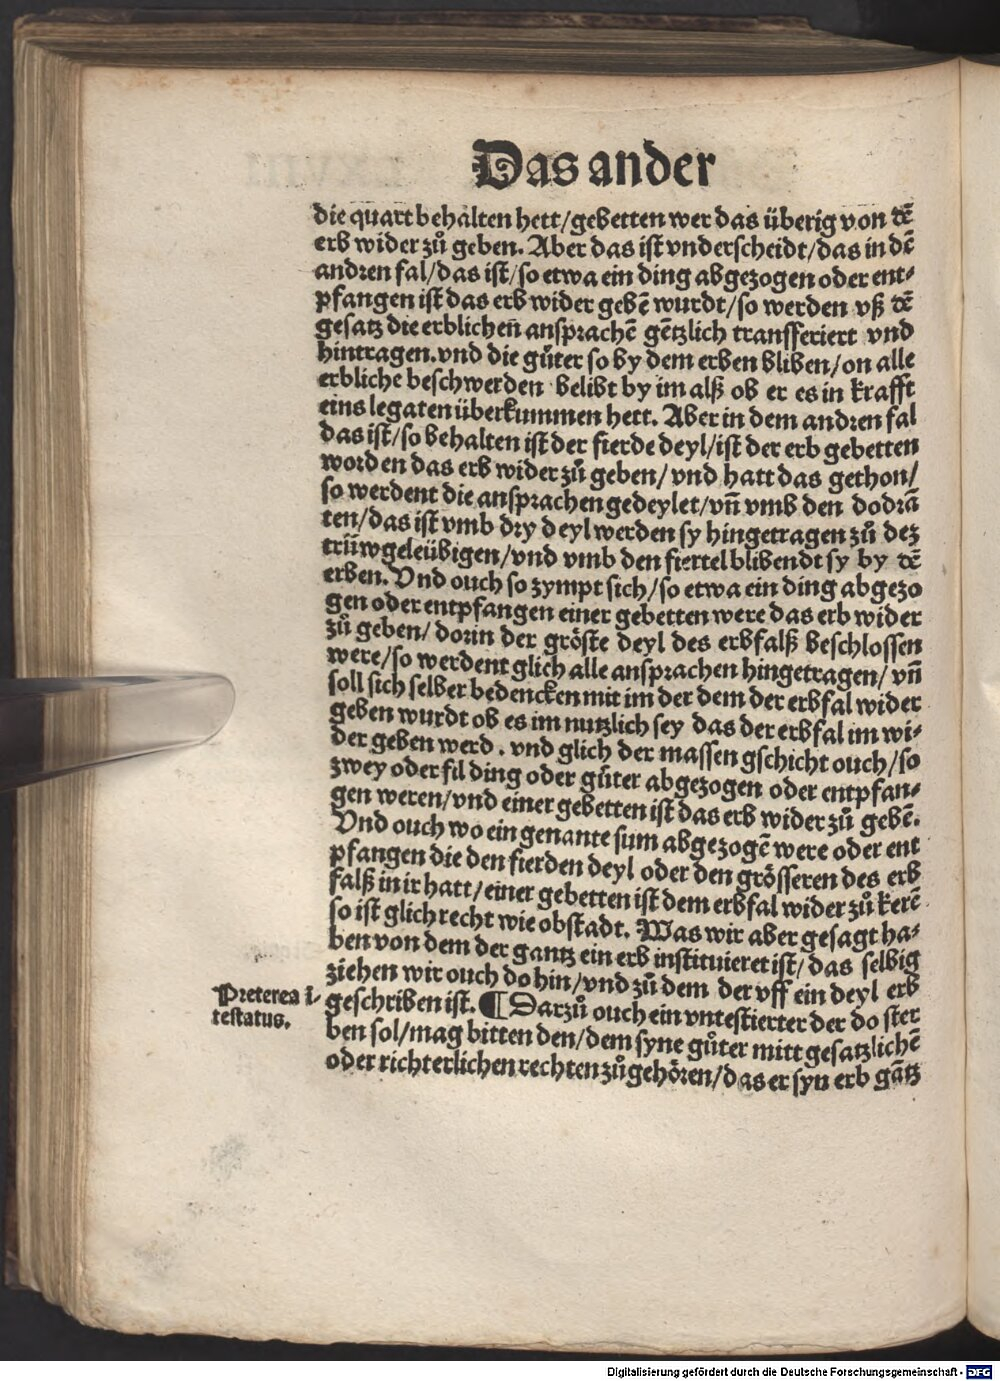 Das ander
die quart behalten hett/gebetten wer das überig von dẽ
erb wider zů geben. Aber das ist vnderscheidt/das in dẽ
andren fal/das ist/so etwa ein ding abgezogen oder ent⸗
pfangen ist das erb wider gebẽ wurdt/so werden vß dẽ
gesatz die erblichen̄ ansprachẽ gẽtzlich transfferiert vnd
hintragen.vnd die gůter so by dem erben bliben/on alle
erbliche beschwerden belibt by im alß ob er es in krafft
eins legaten überkummen hett. Aber in dem andren fal
das ist/so behalten ist der fierde deyl/ist der erb gebetten
worden das erb wider zů geben/vnd hatt das gethon/
so werdent die ansprachen gedeylet/vn̄ vmb den dodrã
ten/das ist vmb dry deyl werden sy hingetragen zů dez
trüwgeleübigen/vnd vmb den fiertel blibendt sy by dẽ
erben. Vnd ouch so zympt sich/so etwa ein ding abgezo
gen oder entpfangen einer gebetten were das erb wider
zů geben/dorin der gröste deyl des erbfalß beschlossen
were/so werdent glich alle ansprachen hingetragen/vn̄
soll sich selber bedencken mit im der dem der erbfal wider
geben wurdt ob es im nutzlich sey das der erbfal im wi⸗
der geben werd. vnd glich der massen gschicht ouch/so
zwey oder fil ding oder gůter abgezogen oder entpfan⸗
gen weren/vnd einer gebetten ist das erb wider zů gebẽ.
Vnd ouch wo ein genante sum abgezogẽ were oder ent
pfangen die den fierden deyl oder den grösseren des erb
falß in ir hatt/einer gebetten ist dem erbfal wider zů kerẽ
so ist glich recht wie obstadt. Was wir aber gesagt ha⸗
ben von dem der gantz ein erb instituieret ist/das selbig
ziehen wir ouch do hin/vnd zů dem der vff ein deyl erb
Preterea ĩ⸗
testatus.
geschriben ist. ¶ Darzů ouch ein vntestierter der do ster
ben sol/mag bitten den/dem syne gůter mitt gesatzlichẽ
oder richterlichen rechten zůgehören/das er syn erb gãtz
Digitalisierung gefördert durch die Deutsche Forschungsgemeinschaft - DFG